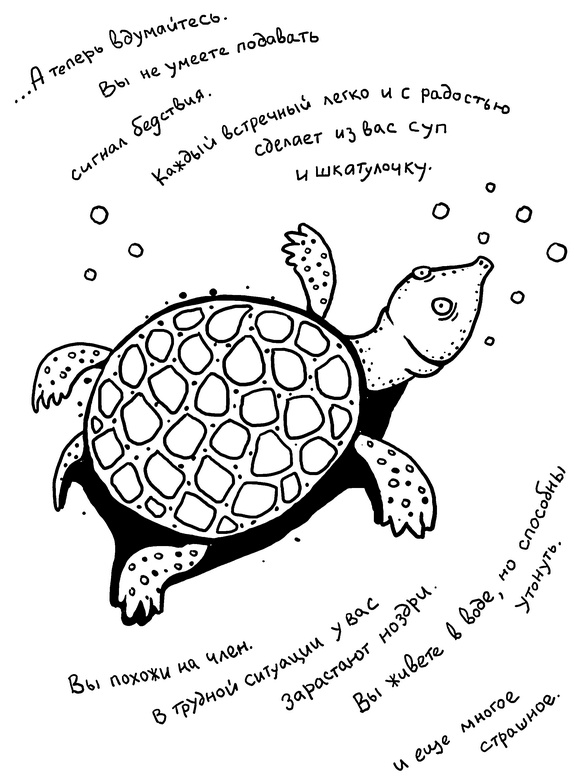 ...А теперь вдумайтесь.
Вы не умеете подавать
сигнал бедствия.
Каждый встречный легко и с радостью
сделает из вас суп
и шкатулочку.
Вы похожи на член.
В трудной ситуации у вас
зарастают ноздри.
Вы живете в воде, но способны
утонуть.
и еще многое
страшное.